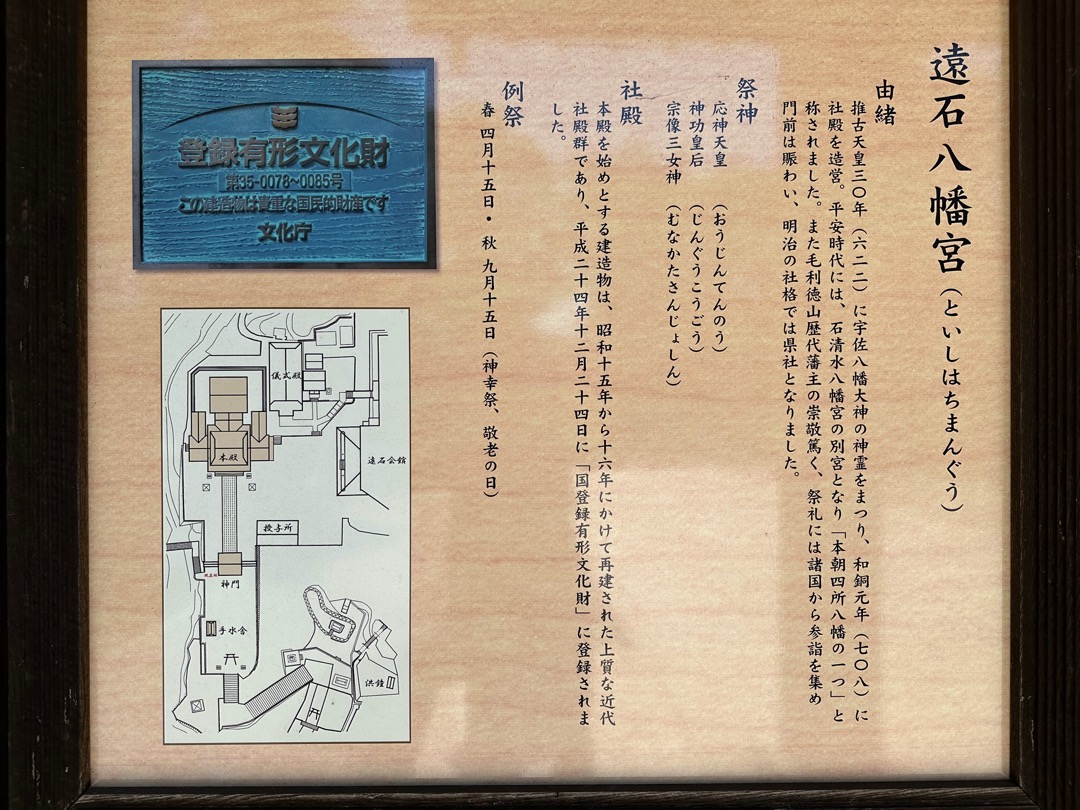 遠石八幡宮（といしはちまんぐう）
由緒
推古天皇三〇年（六二二）に宇佐八幡大神の神霊をまつり、和銅元年（七〇八）に
社殿を造営。平安時代には、石清水八幡宮の別宮となり「本朝四所八幡の一つ」と
称されました。また毛利徳山歴代藩主の崇敬篤く、祭礼には諸国から参詣を集め
門前は賑わい、明治の社格では県社となりました。
祭神
応神天皇（おうじんてんのう）
神功皇后（じんぐうこうごう）
宗像三女神（むなかたさんじょしん）
社殿
本殿を始めとする建造物は、昭和十五年から十六年にかけて再建された上質な近代
社殿群であり、平成二十四年十二月二十四日に「国登録有形文化財」に登録されま
した。
例祭
春 四月十五日・秋 九月十五日（神幸祭、敬老の日）
登録有形文化財
第35-0078~0085号
この建造物は貴重な国民的財産です
文化庁
儀式殿
本殿
遠石会館
授与所
神門
手水舎
洪鐘